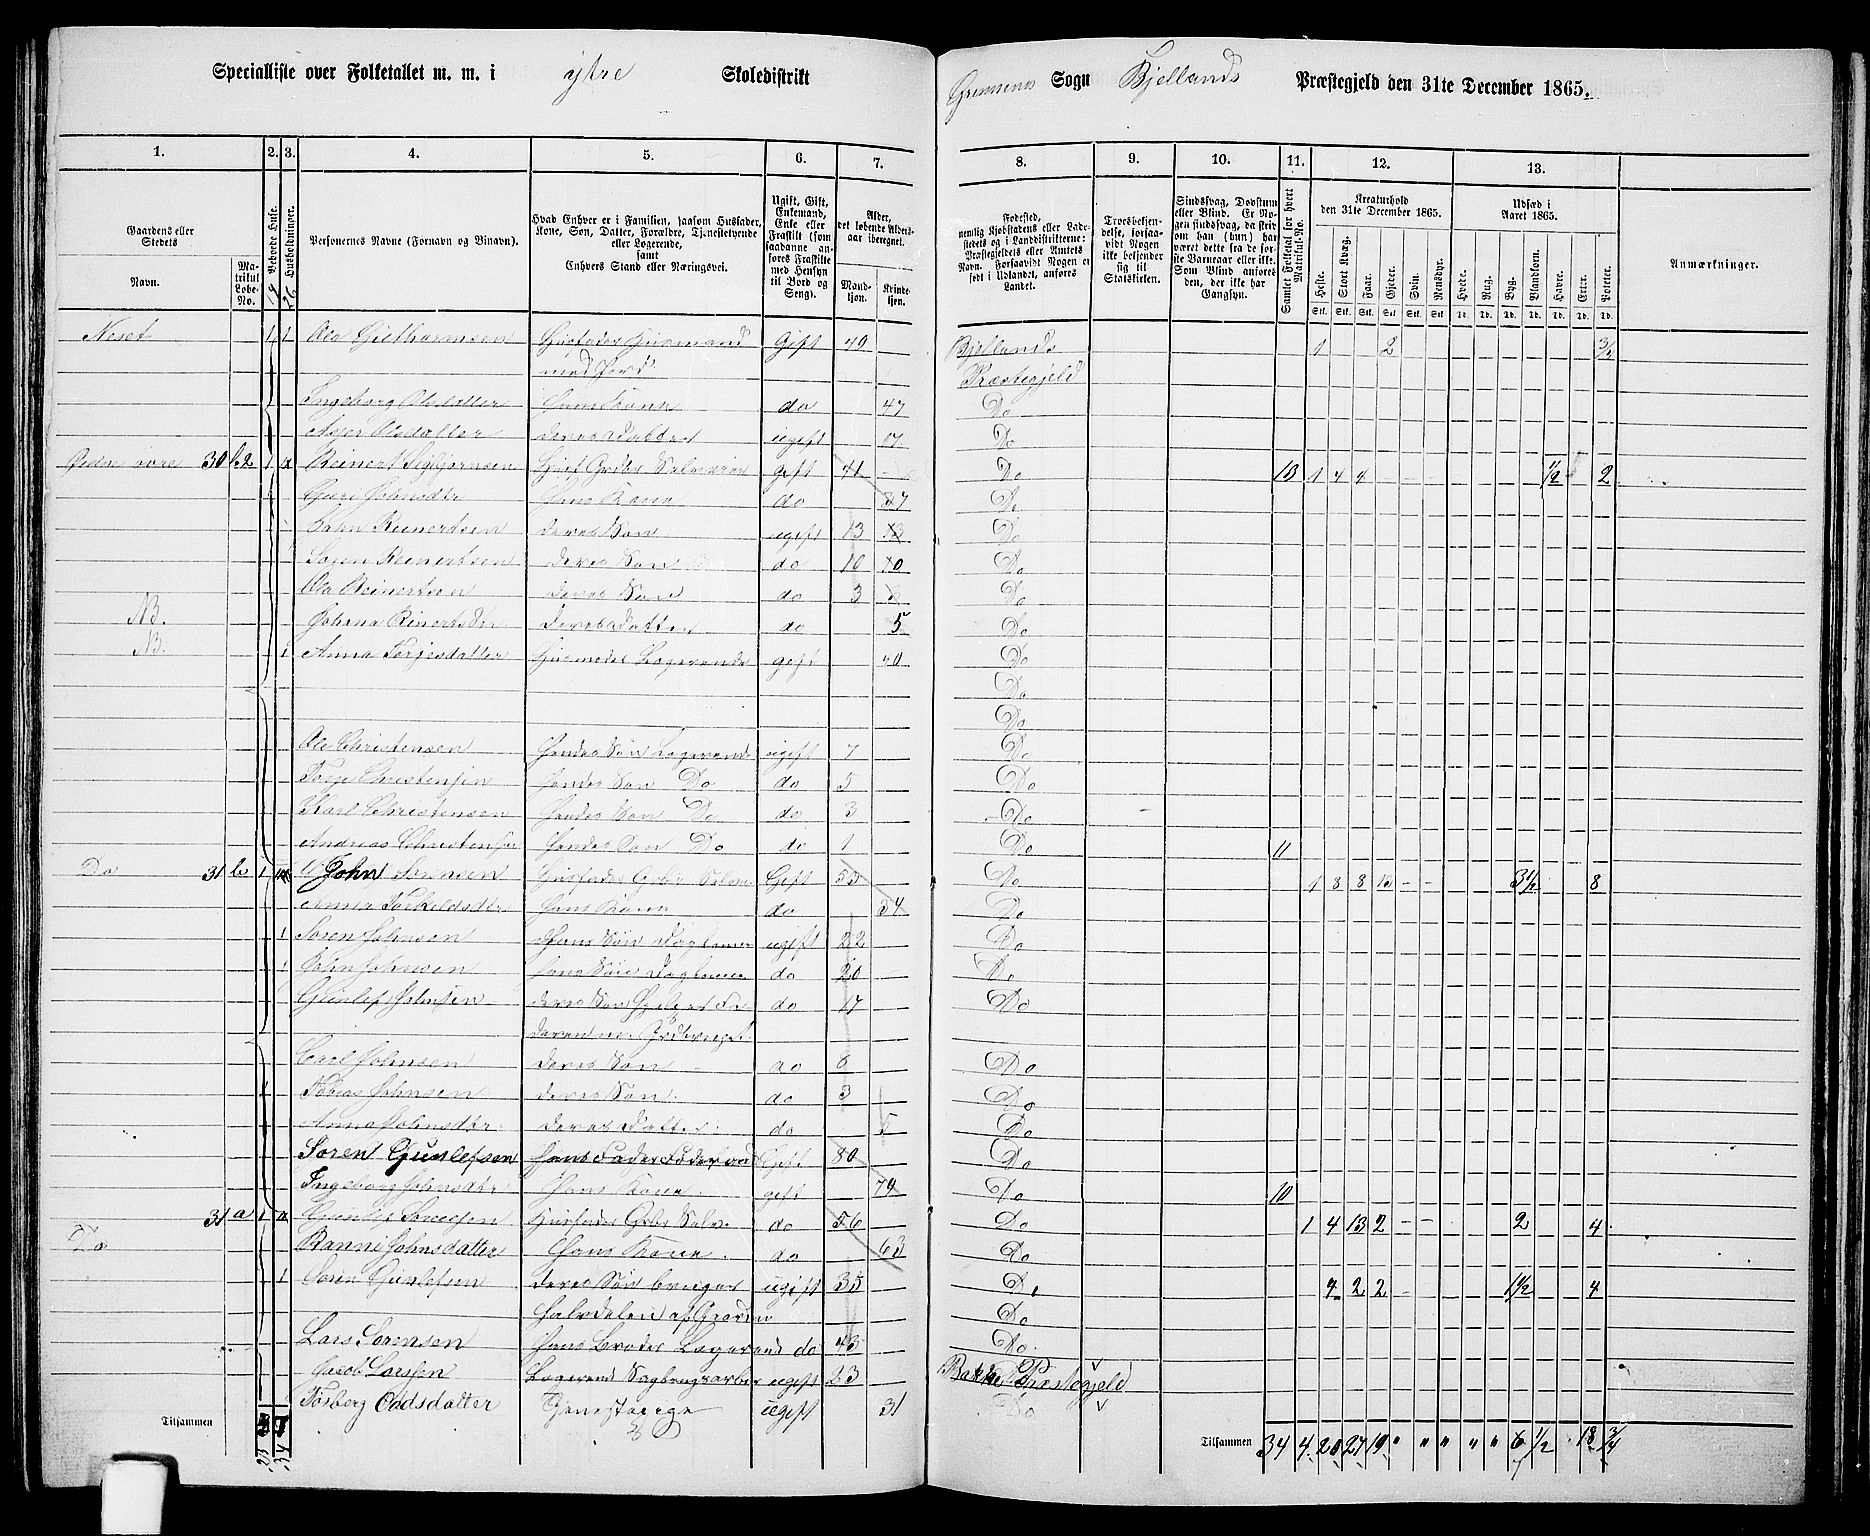 Specialliste over Folketallet m. m. i ytre Skoledistrikt
Sogn Bjellands Præstegjeld den 31te December 1865.
1. 2. 3. 4. 5. 6. 7. 8. 9. 10. 11. 12. 13.
Gaardens eller Stedets
Navn.
Matrikul Løbe-No.
Beboede Huse.
Husholdninger.
Personernes Navne (Fornavn og Binavn).
Hvad Enhver er i Familien, saasom Husfader, Kone, Søn, Datter, Forældre, Tjenestetyende eller Logerende, samt Enhvers Stand eller Næringsvei.
Ugift, Gift, Enkemand, Enke eller Fraskilt (som saadanne anføres Fraskilte med Hensyn til Bord og Seng).
Alder, det løbende Aldersaar iberegnet.
Mandkjøn. Kvindekjøn.
Fødested, nemlig Kjøbstadens eller Ladestedets og i Landdistrikterne: Præstegjeldets eller Amtets Navn. Forsaavidt Nogen er født i Udlandet, anføres Landet.
Troesbekjendelse, forsaavidt Nogen ikke bekjender sig til Statskirken.
Sindssvag, Døvstum eller Blind. Er Nogen sindssvag, da skrives om han (hun) har været dette fra de første Barneaar eller ikke. Som Blind anføres den, der ikke har Gangsyn.
Samlet Folketal for hvert Matrikul-No.
Kreaturhold den 31te December 1865.
Heste. Stort Kvæg. Faar. Gjeder. Svin. Rensdyr.
Udsæd i Aaret 1865.
Hvede. Rug. Byg. Blandkorn. Havre. Erter. Poteter.
Anmærkninger.
Neset 1 1 Ole Gutthormsen Husfader Huusmand Gift 49 Bjellands 1 2 3/4
med Jord Præstegjeld
Ingeborg Olsdatter hans Kone do 47 Do
Olsdatter deres Datter ugift 17 Do
30 b.2 1 Reinert Sigbjørnsen gift 41 Do 13 1 4 4 1/2 2
Guri Johnsdtr hans Kone do 37 Do
John Reinertsen deres Søn ugift 13 13 Do
Søren Reinertsen deres Søn do 10 10 Do
Ole Reinertsen deres Søn do 3 Do
NB. Johna Reinertsdtr deres Datter do 5 Do
NB. 1 Anna Torjesdatter Logerende gift 40 Do
Do
Do
Ole Christensen hendes Søn Logerende ugift 7 Do
Torje Christensen hendes Søn Do do 5 Do
Karl Christensen hendes Søn Do do 3 Do
Andreas Christensen hendes Søn Do do 1 Do 11
Do 31 b 1 John Sørensen Husfader Grbr Selvei Gift 55 Do 1 8 8 13 3 1/2 8
Anna Torkeldsdtr hans Kone do 54 Do
1 Søren Johnsen hans Søn Daglønner ugift 22 Do
1 John Johnsen hans Søn Daglønner do 20 Do
Gunlef Johnsen deres Søn hjelper Fa- do 17 Do
deren m. Grdbruget
Carl Johnsen deres Søn do 8 Do
Tobias Johnsen deres Søn do 3 Do
Anna Johnsdtr deres Datter do 5 Do
Søren Gunlefsen hans Fader Føderaad Gift 80 Do
Ingeborg Johnsdtr hans Kone gift 79 Do 10
31 a 1 Gunlef Sørensen Husfader Grbr Selv. do 56 Do 1 4 13 2 2 4
Do Ranni Johnsdatter hans Kone do 63 Do
1 Søren Gunlefsen deres Søn bruger ugift 35 Do 7 22 2 1 1/2 4
halvdelen af Gaarden Do
Lars Sørensen hans Broder Logerend do 43 Do.
Jacob Larsen Logerend Sagbrugsarbei ugift 23 Bakke Præstegjeld
Torberg Oddsdatter Tjenestepige ugift 31 Do
Tilsammen 23 34
Tilsammen 34 4 20 27 19 " " " " " 6 1/2 18 3/4
7